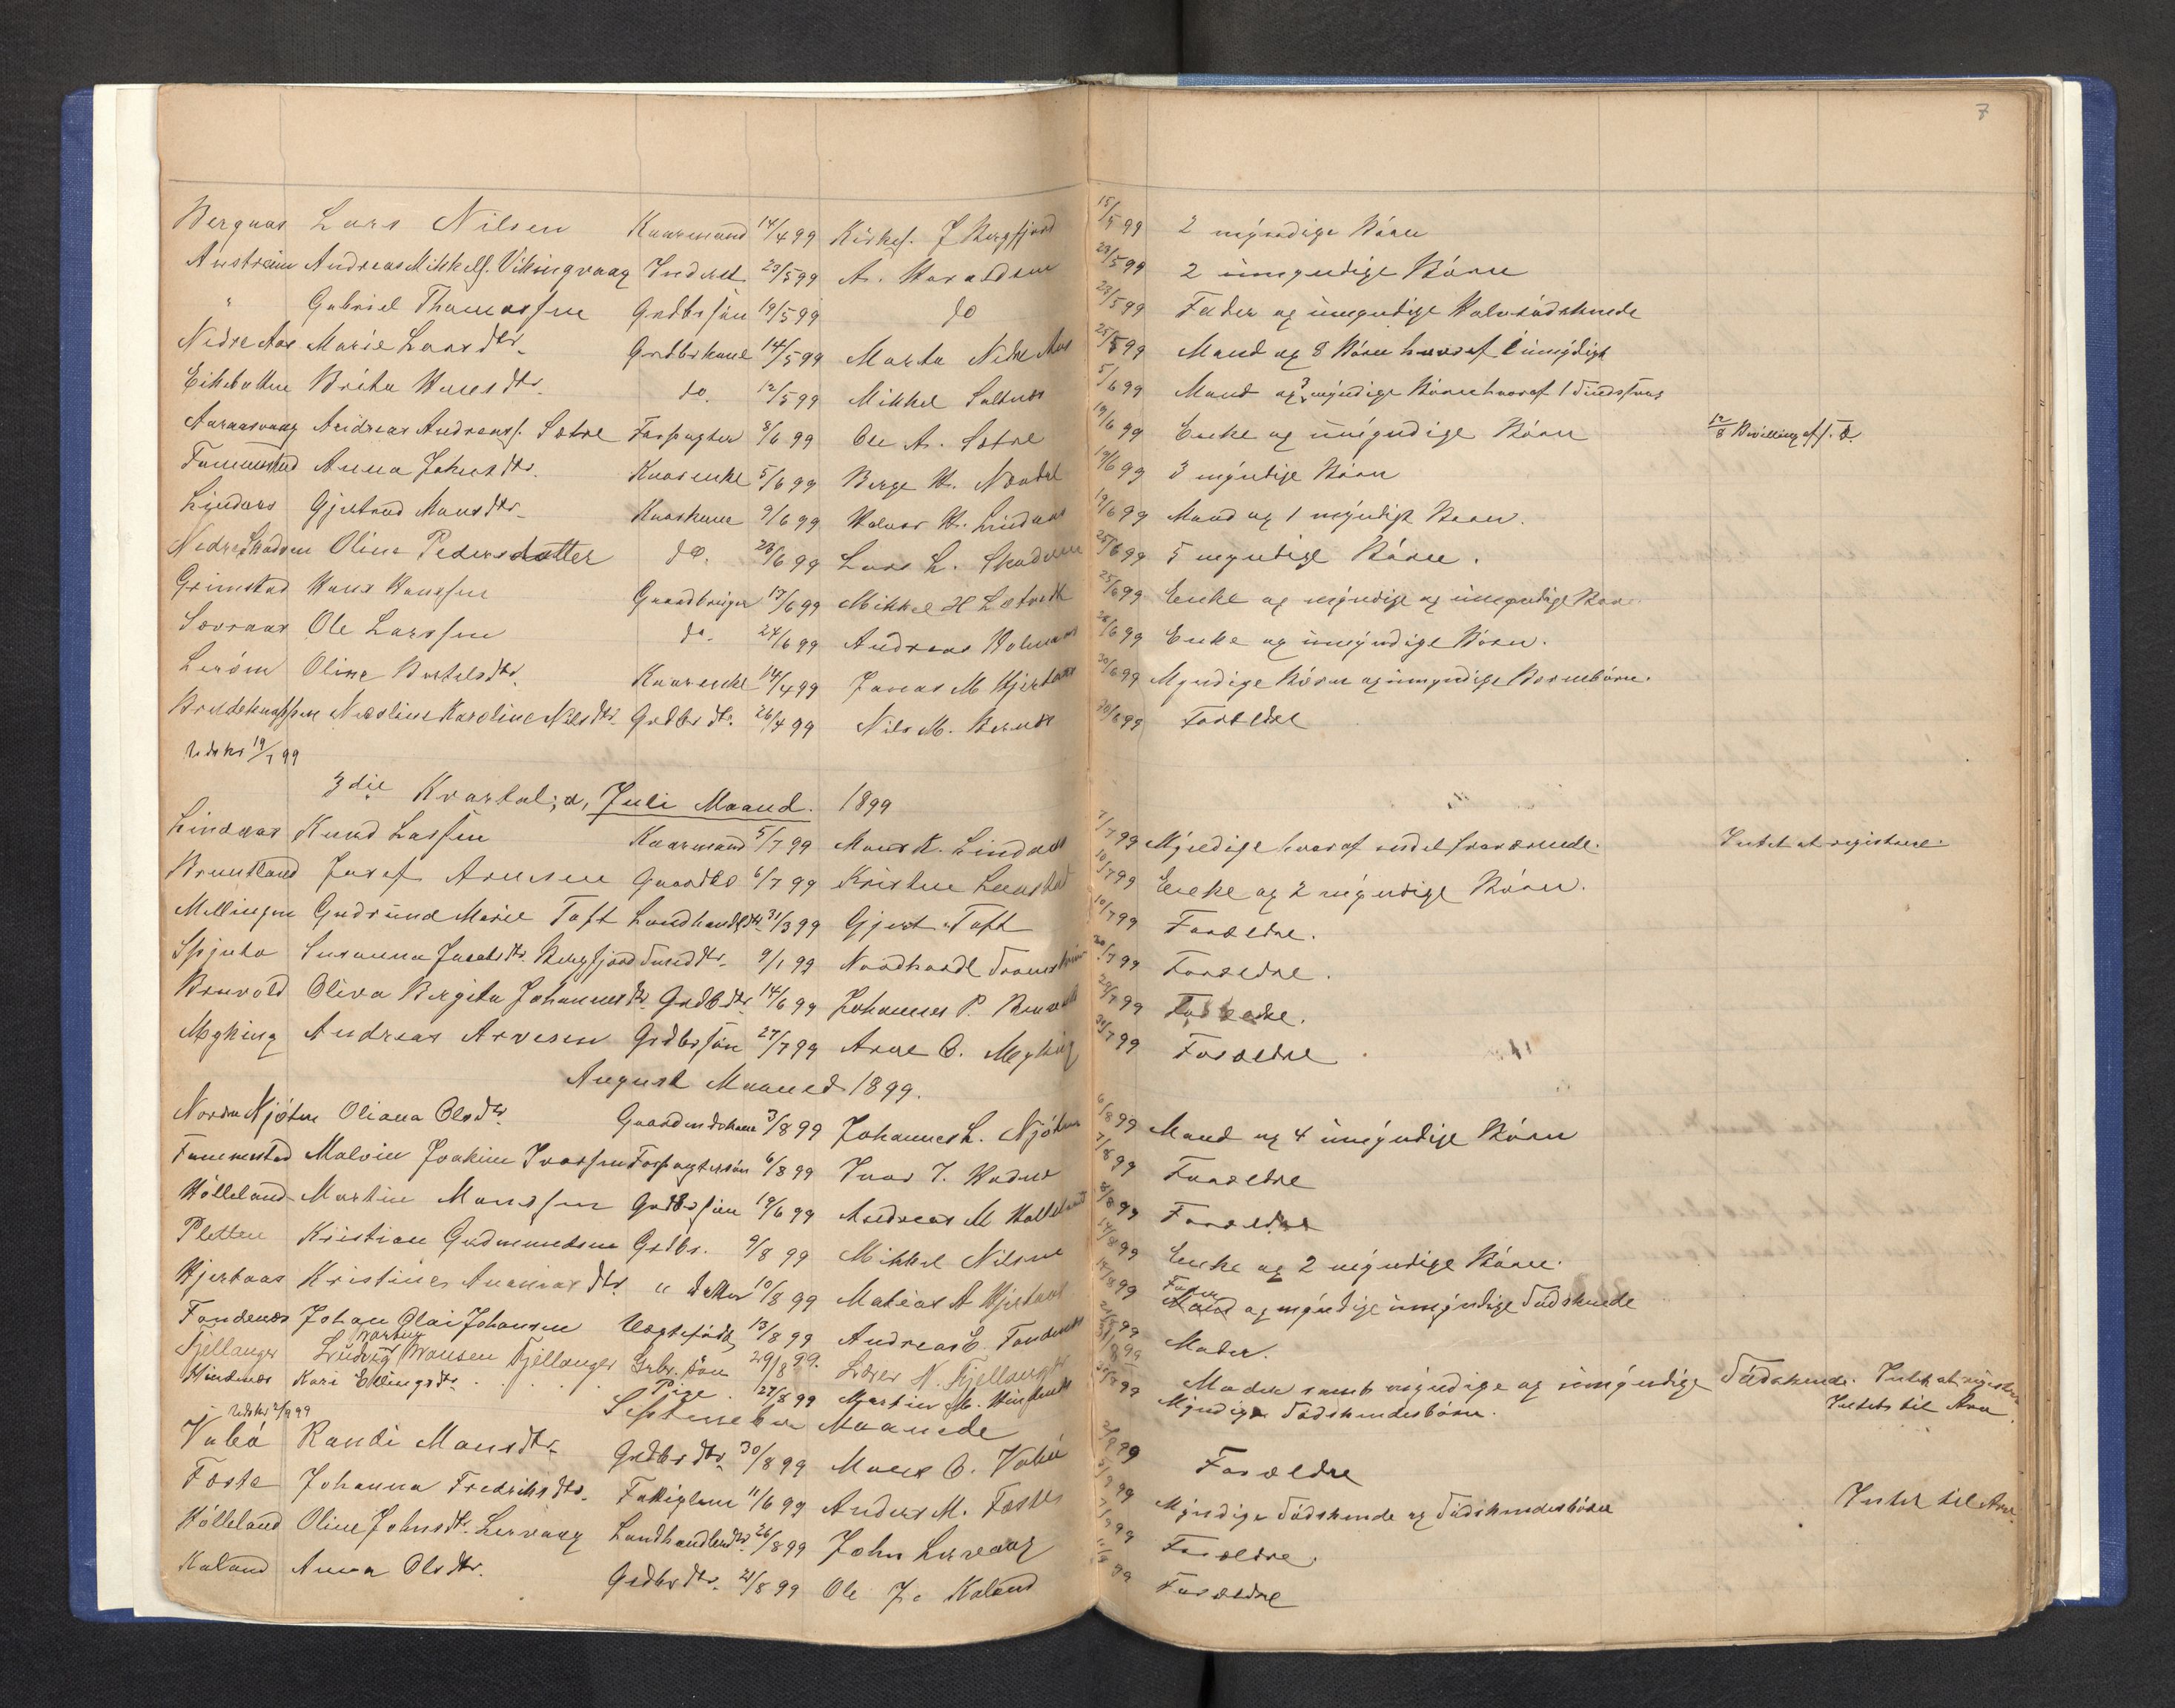 7
Bergaas Lars Nilsen Kaarmand 14/4 99 Kirkes. J Bergfjord 15/5 99 2 myndige Börn
Austrheim Andreas Mikkels. Vikingvaag Inderst 23/5 99 A. Haraldsen 23/5 99 2 umyndige Börn
" Gabriel Thomassen Grdbrsön 19/5 99 do 23/5 99 Fader og umyndige Halvsödskende
Nedre Aas Marie Larsdtr. Grdbrkone 14/5 99 Marta Nedre Aas 25/5 99 Mand og 8 Börn hvoraf 1 umyndigt
Eikebotten Brita Hansdtr. do. 12/5 99 Mikkel Saltnes 5/6 99 Mand og 3 myndige Börn hvoraf 1
Aaraasvaag Andreas Andreass. Sætre Forpagter 8/6 99 Ole A. Sætre 19/6 99 Enke og umyndige Börn 12/8 Bevilling
Fammestad Anna Johnsdtr. Kaarenke 5/6 99 Berge H. 19/6 99 3 myndige Börn
Lindaas Gjertrud Monsdtr. Kaarkone 9/6 99 Halvor H. Lindaas 19/6 99 Mand og 1 myndigt Barn.
Nedre Skodven Oline Pedersdatter do. 23/6 99 Lars L. Skodven 25/6 99 5 myndige Börn.
Grimstad Hans Hanssen Gaardbruger 17/6 99 Mikkel H 25/6 99 Enke og myndige og umyndige Börn
Sævraas Ole Larssen do. 24/6 99 Andreas 28/6 99 Enke og umyndige Börn.
Leröen Oline Bertelsdtr. Kaarenke 14/4 99 Jonas M Hjertaas 30/6 99 Myndige Börn og umyndige Barnebörn.
Brudeknappen Nicoline Karoline Nilsdtr. Grdbrdtr. 26/4 99 Nils M. 30/6 99 Forældre
Udskr 19/7 99
3die Kvartal; a, Juli Maaned. 1899
Lindaas Knud Lassen Kaarmand 5/7 99 Mons K. Lindaas 7/7 99 Myndige hvoraf endel fraværende. Intet at registrere.
Bruntland Josef Arnesen Gaardbr 6/7 99 Kristen 10/7 99 Enke og 2 myndige Börn.
Mellingen Gudrund Marie Toft Landhandldtr. 31/3 99 Gjert Toft 10/7 99 Forældre.
Spjuto Susanna Jacobsdtr. Bergfjord 9/1 99 Nordhordl 20/7 99 Forældre.
Bruvold Oliva Bergita Johannesdtr. Grdbdtr. 14/6 99 Johannes P. Bruvold 29/7 99 Forældre.
Myking Andreas Arnesen Grdbrsön 27/7 99 Arne O. Myking 31/7 99 Forældre.
August Maaned 1899.
Nordre Njöten Oliana Olsdtr. Gaardmdskone 3/8 99 Johannes L. Njöten 6/8 99 Mand og 4 umyndige Börn
Fammestad Malvin Joakim Ivarsen Forpagtersön 6/8 99 Ivar J. 7/8 99 Forældre
Hölleland Martin Monssen Grdbrsön 19/6 99 Andreas M Hölleland 8/8 99 Forældre
Pletten Kristian Gudmundsen Grdbr. 9/8 99 Mikkel Nilsen 14/8 99 Enke og 2 myndige Börn.
Hjertaas Kristine Ananiasdtr. " datter 10/8 99 Matias A Hjertaas 15/8 99 Faren Mand og myndige umyndige Södskende
Fondenæs Johan Olai Johansen 13/8 99 Andreas E. Fondenæs 99 Moder.
Fjellanger Ludvig Martin Monsen Fjellanger Grbr. sön 29/8 99. Lærer N. Fjellanger 31/8 99 Moder samt myndige og umyndige Södskende. Intet at registrere
Hindenes Kari Ellingsdtr. Pige. 27/8 99 Martin M. Hindenes 99 Myndige Södskendesbörn. Intet til Arv.
Udskr 2/9 99 September Maanede
Vabö Randi Monsdtr. Grdbrdtr. 30/8 99 Mons O. Vabö 2/9 99 Forældre
Foste Johanna Fredriksdtr. Fattiglem 11/6 99 Anders M. Foste 99 Myndige Södskende og Södskendesbörn Intet til Arv.
Kölleland Oline Johnsdtr. Lervaag Landhandlerdtr. 26/8 99 John Lervaag 7/9 99 Forældre.
Kaland Anna Olsdtr. Grdbrdtr. 21/8 99 Ole J. Kaland 99 Forældre